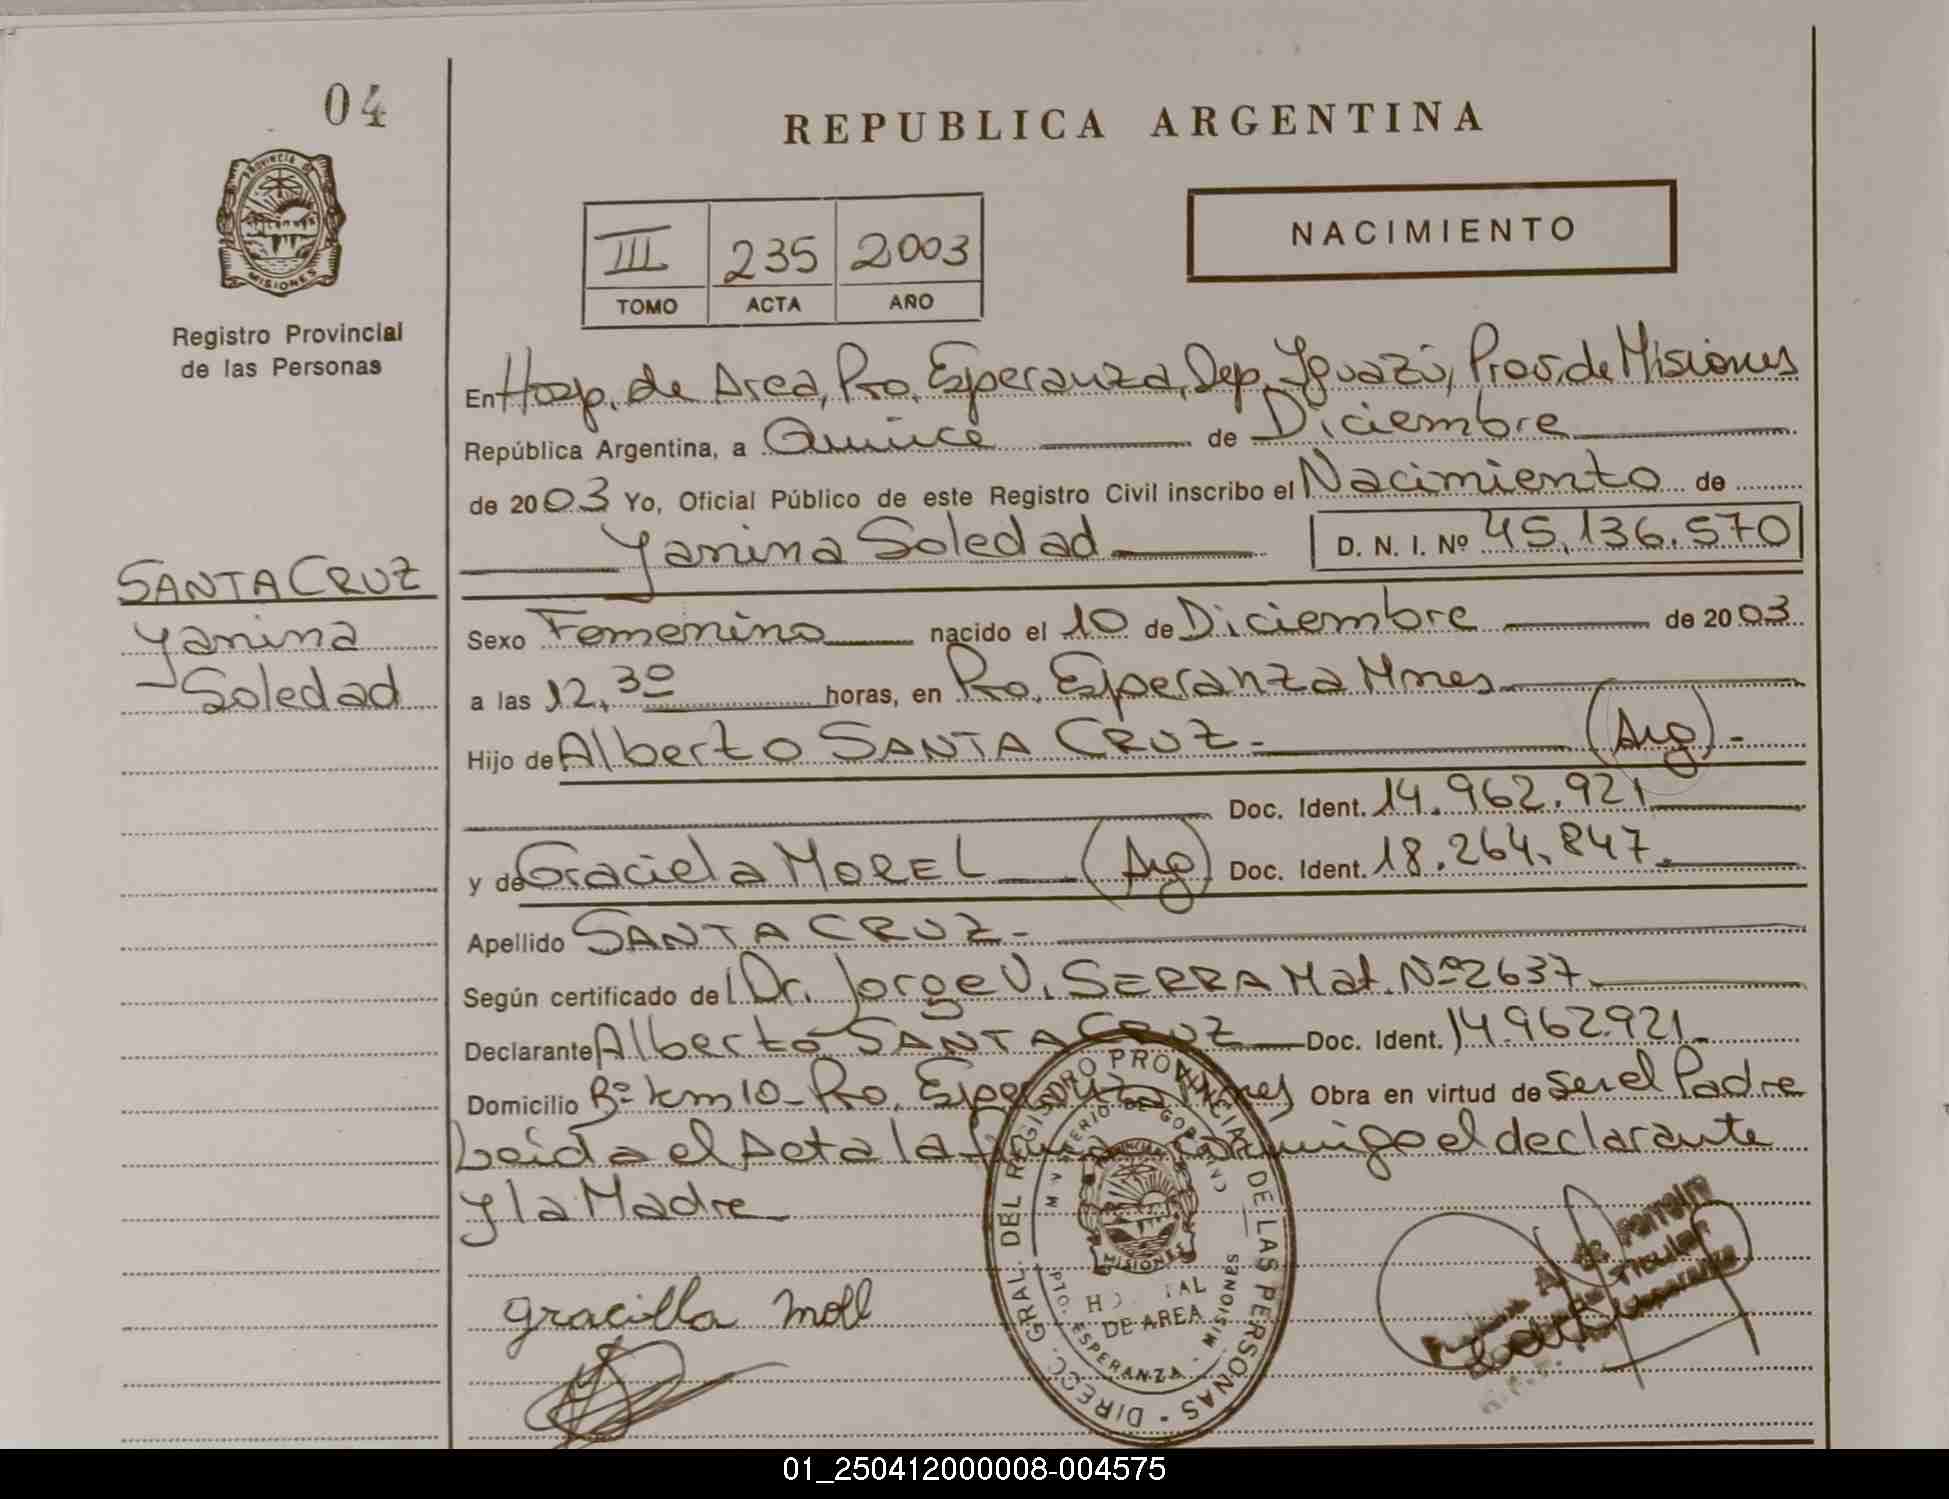 04
REPUBLICA ARGENTINA
PROVINCIA DE
MISIONES
Registro Provincial
de las Personas
III 235 2003
TOMO ACTA AÑO
NACIMIENTO
En Hosp. de Area, Pto. Esperanza, Dep. Iguazú, Prov. de Misiones
República Argentina, a Quince de Diciembre
de 2003 Yo, Oficial Público de este Registro Civil inscribo el Nacimiento de
Yanina Soledad D. N. I. Nº 45.136.570
SANTA CRUZ
Yanina
Soledad
Sexo Femenino nacido el 10 de Diciembre de 2003
a las 12,30 horas, en Pto. Esperanza Mnes
Hijo de Alberto SANTA CRUZ.- (Arg)-
Doc. Ident. 14.962.921
y de Graciela MOREL (Arg) Doc. Ident. 18.264.847
Apellido SANTA CRUZ.-
Según certificado del Dr. Jorge V. SERRA Mat. Nº 2637
Declarante Alberto SANTA CRUZ Doc. Ident. 14.962.921
Domicilio Bº km 10 - Pto. Esperanza Mnes Obra en virtud de ser el Padre
Leida el Acta la firma conmigo el declarante
y la Madre
DIREC. GRAL. DEL REGISTRO PROVINCIAL DE LAS PERSONAS
MINISTERIO DE GOBIERNO
MISIONES
HOSPITAL
DE AREA
PTO. ESPERANZA - MISIONES
graciella moll
01_250412000008-004575